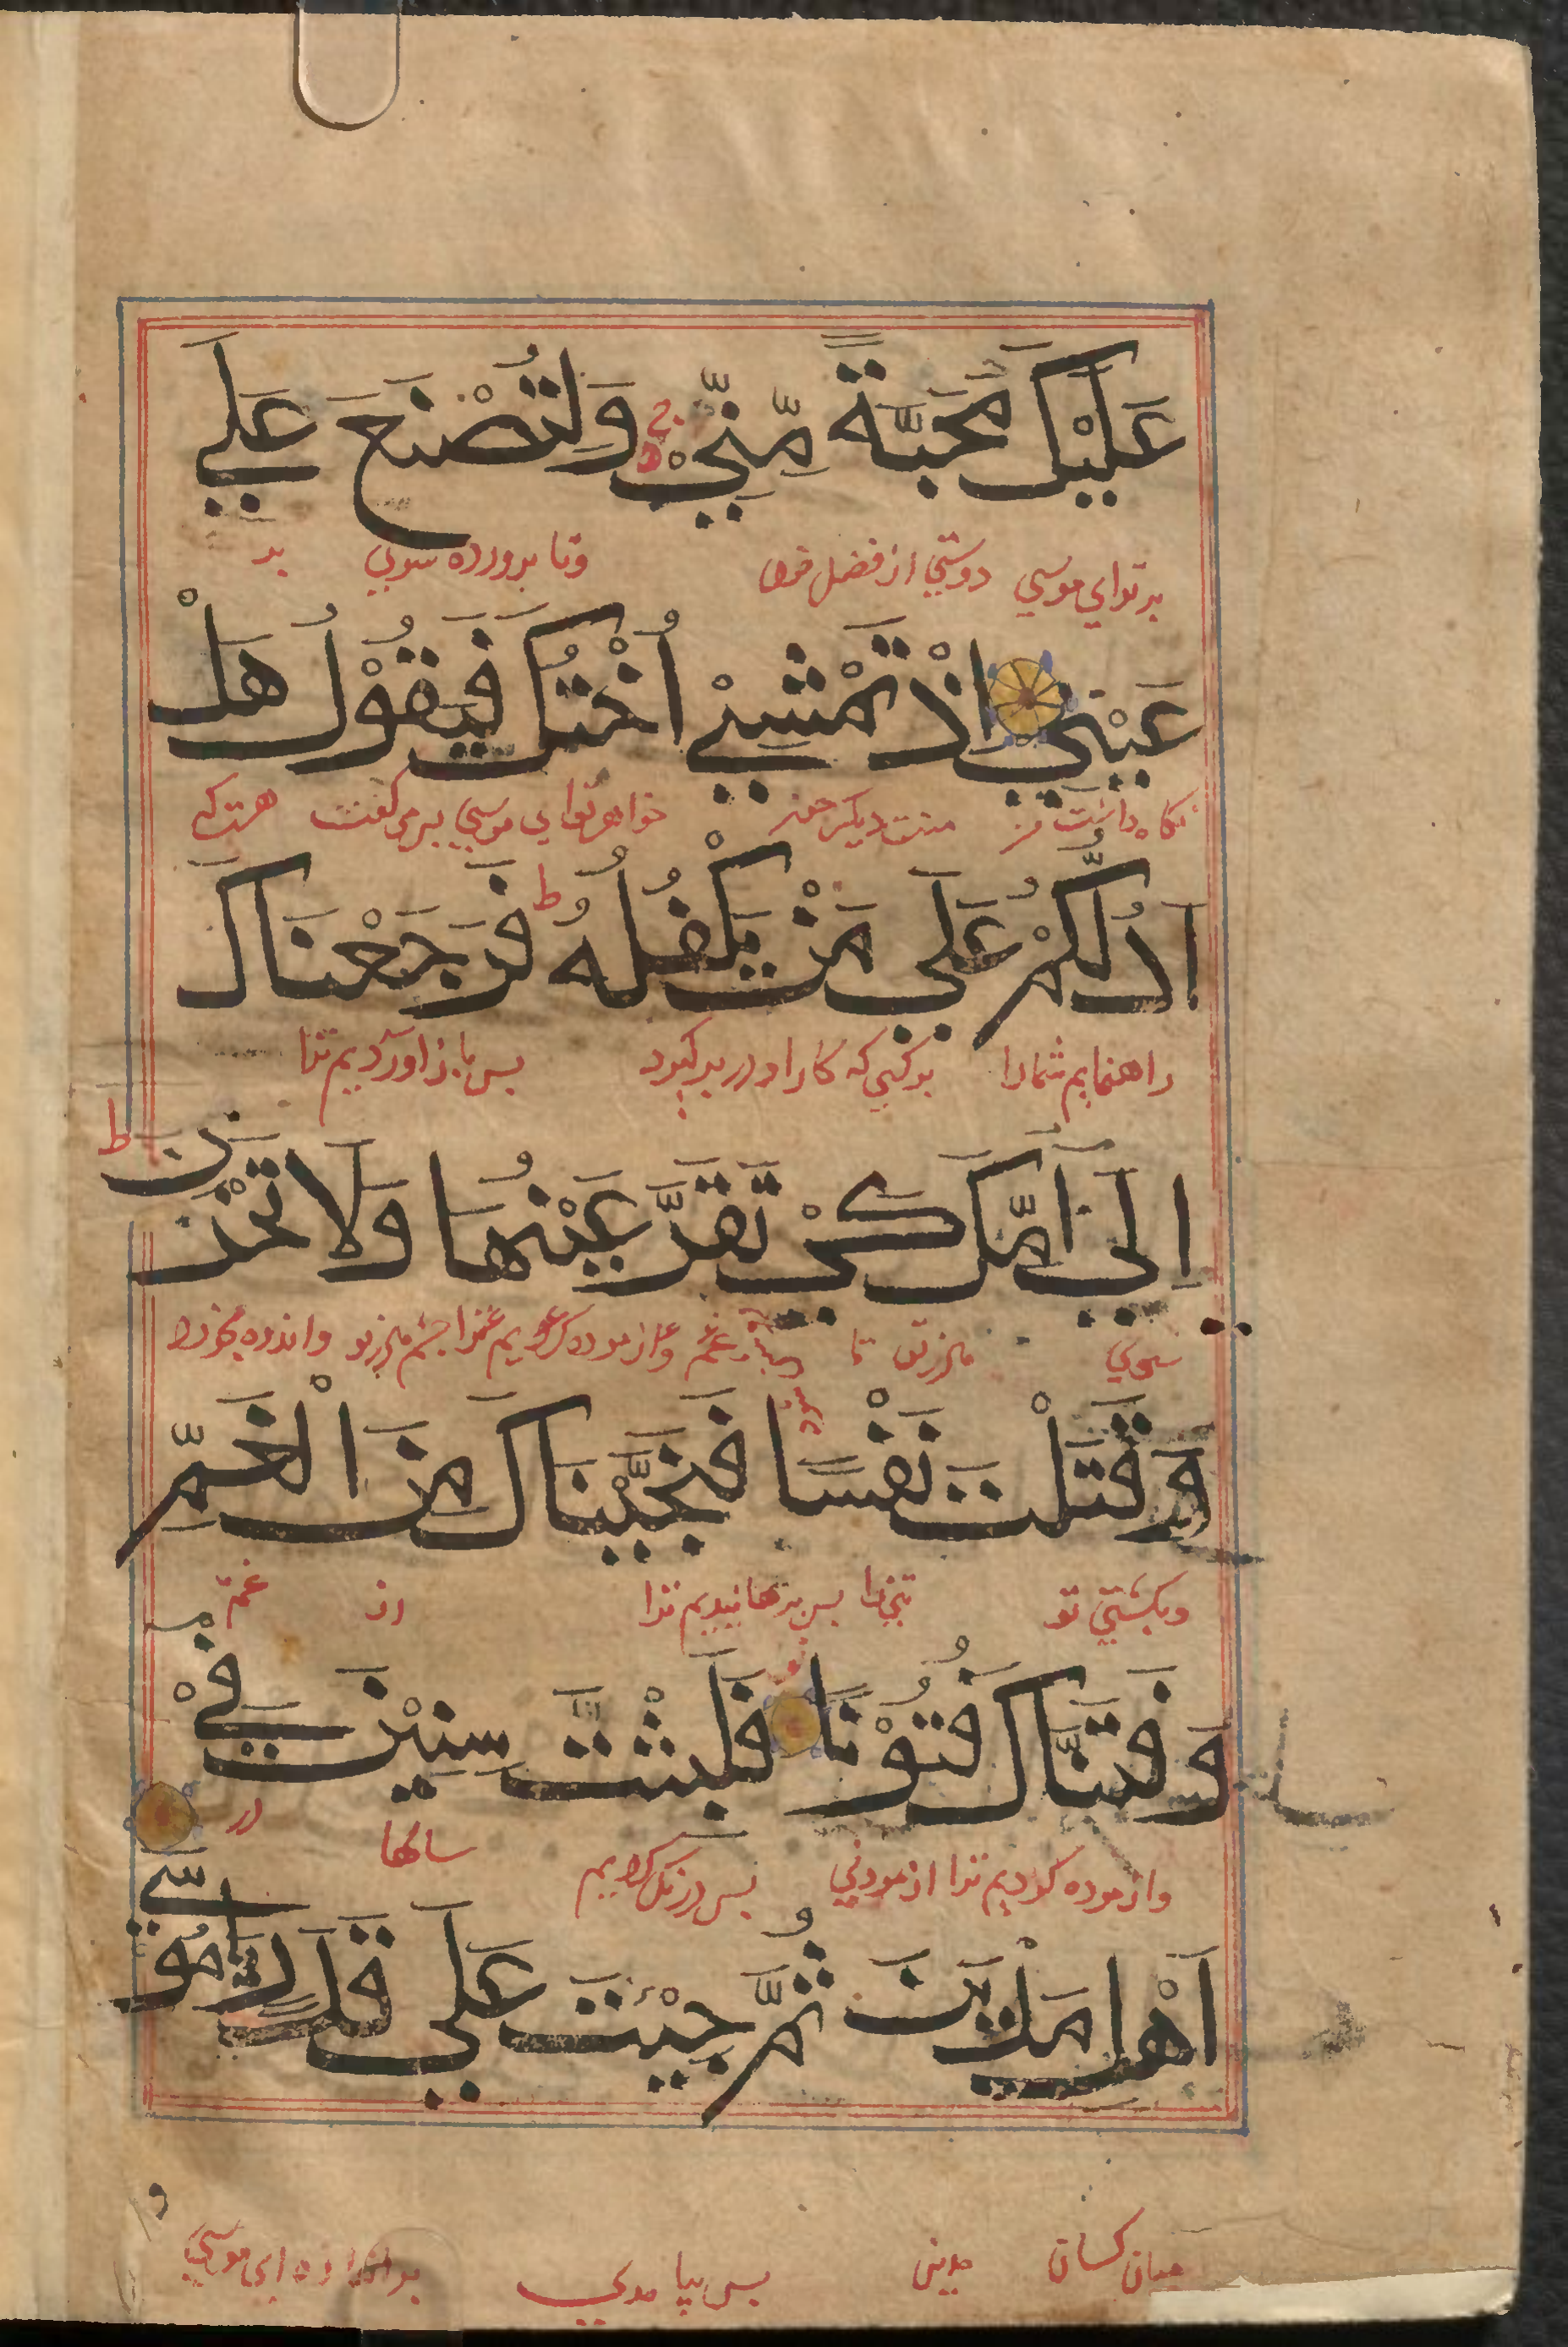 عَلَيْكَ مَحَبَّةً مِّنِّيْ ج ه وَلِتُصْنَعَ عَلَي
بر تو اي موسي دوستي از فضل خود وتا پرورده سوي بر
عَيْنِي اِذْ تَمْشِيْ اُخْتُكَ فَيَقُوْلُ هَلْ
نگاه داشت من منت ديگر چون خواهر تو اي موسي پس مي گفت هست كه
اَدُلُّكُمْ عَلَي مَنْ يَكْفُلُهُ ط فَرَجَعْنَاكَ
راهنمايم شمارا بر كسي كه كار او در پذيرد پس باز اورديم ترا
اِلَيَ اُمِّكَ كَيْ تَقَرَّ عَيْنُهَا وَلَا تَحْزَنَ ط
سوي مادر تو تا چشم مادر تو واندوه نخورد
وَقَتَلْتَ نَفْسًا فَنَجَّيْنَاكَ مِنَ الْغَمِّ
وبكشتي تو تني را پس برهانيديم ترا از غم
وَفَتَنَّاكَ فُتُوْنًا فَلَبِثْتَ سِنِيْنَ فِيْ
وازموده كرديم ترا ازمودني پس درنگ كرديم سالها در
اَهْلِ مَدْيَنَ ثُمَّ جِئْتَ عَلَي قَدَرٍ يَا مُوسَي
ميان كسان مدين پس بيامدي بر اندازه اي موسي